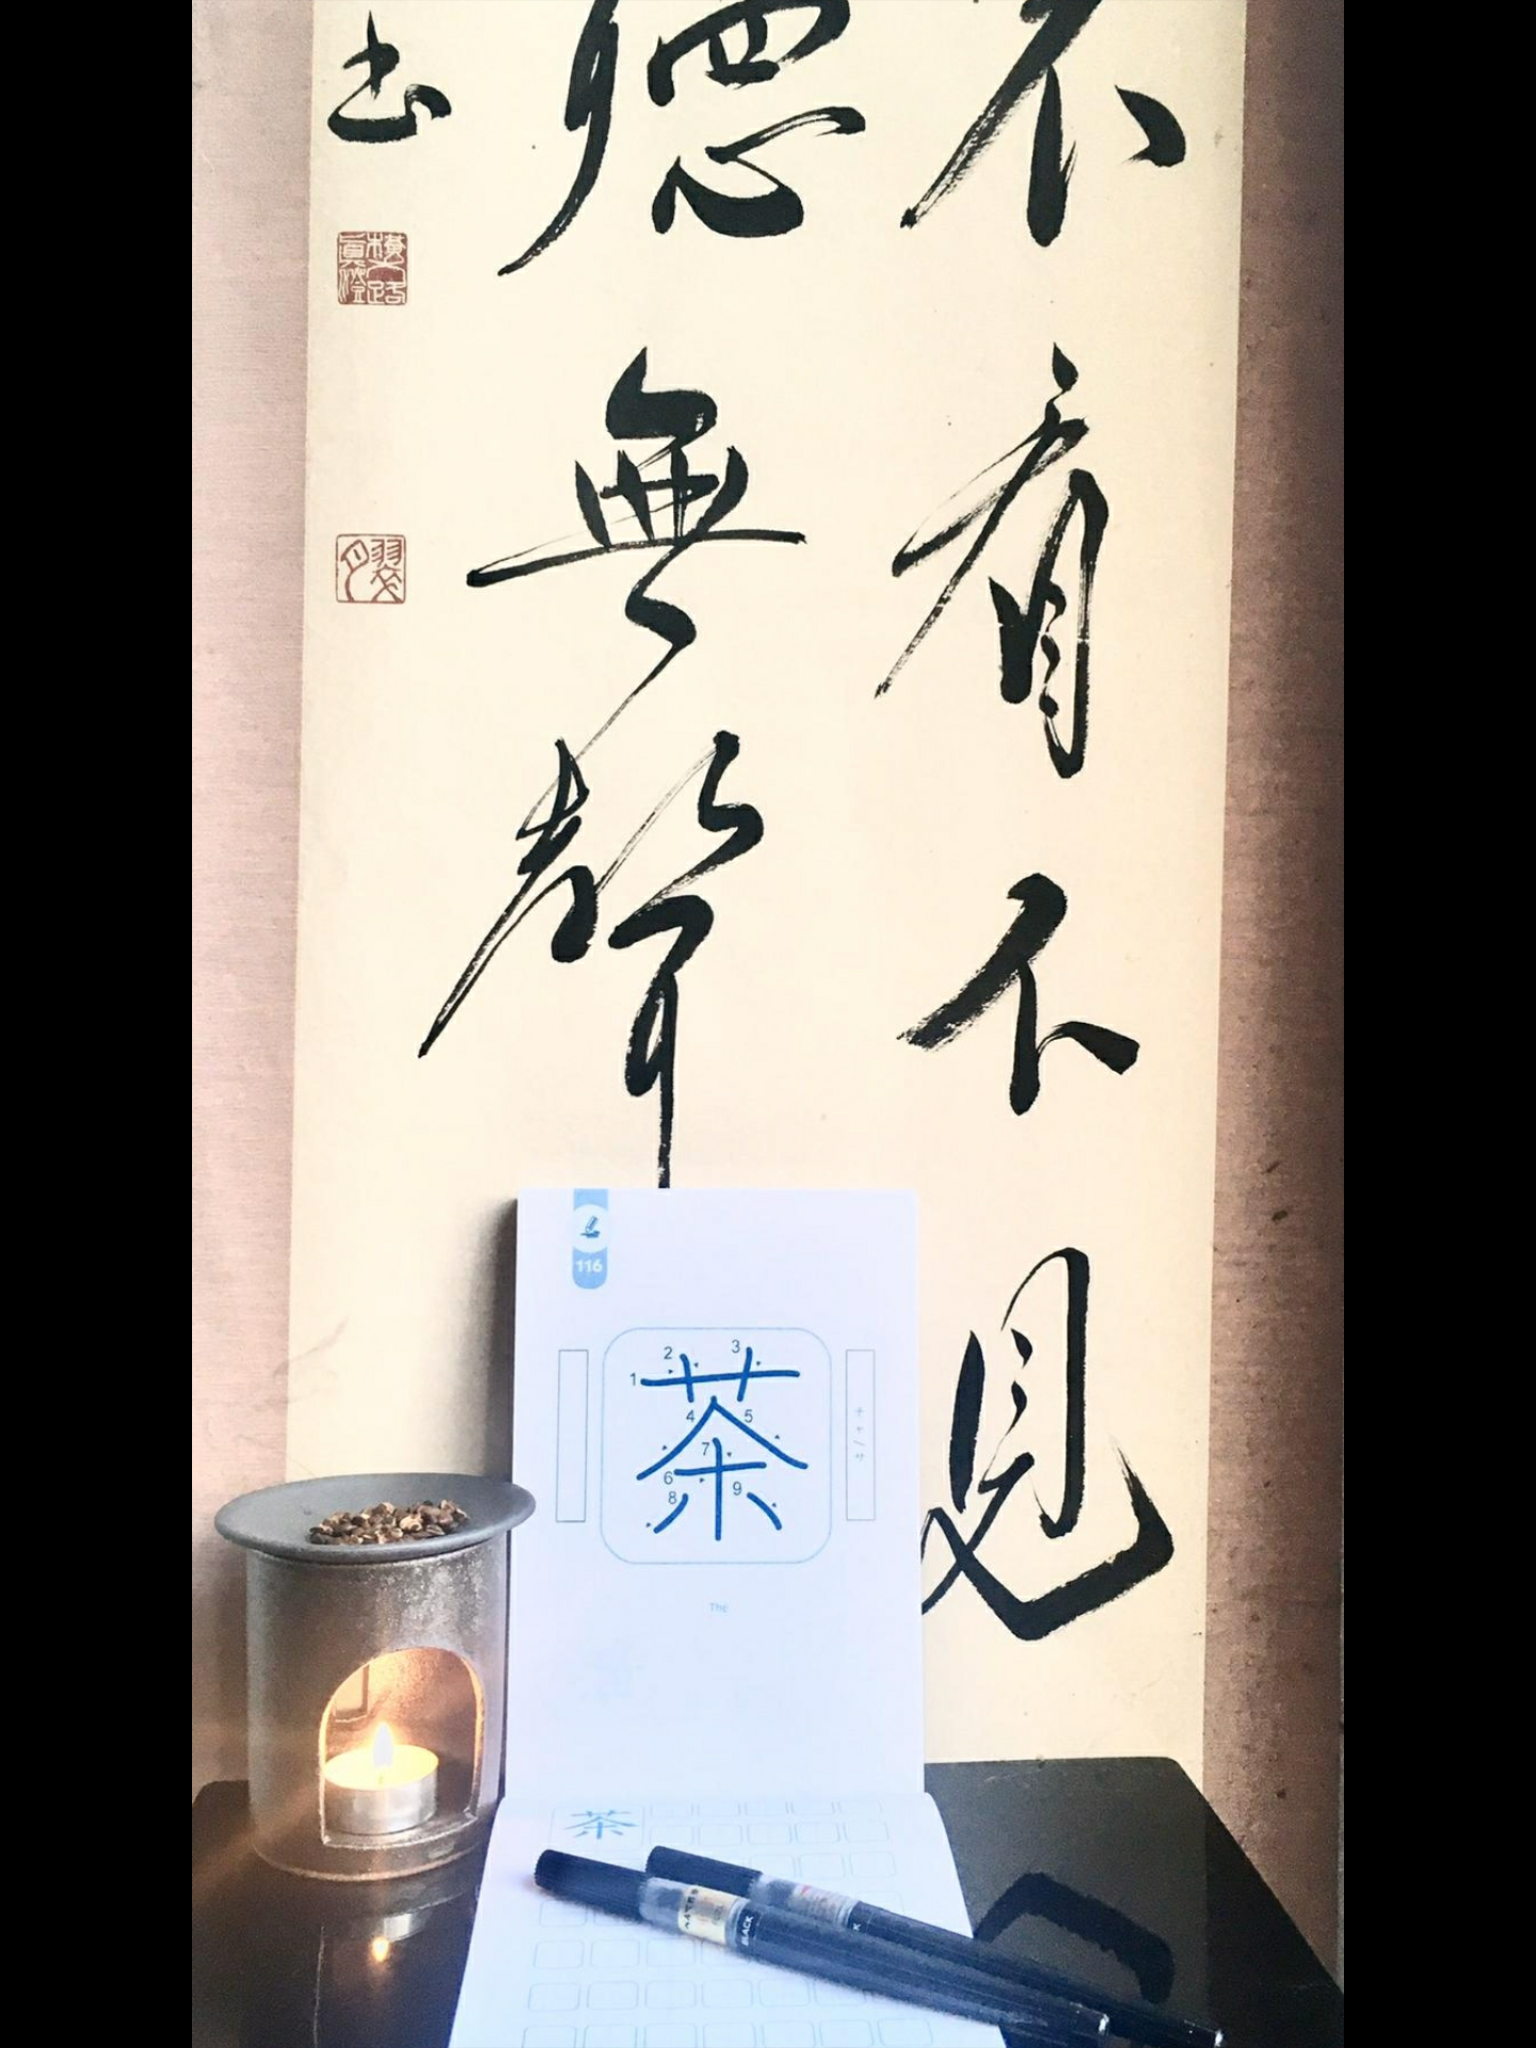 不看不見
聽無聲
書
116
茶
1
2
3
4
5
6
7
8
9
チャ/サ
Thé
茶
BLACK